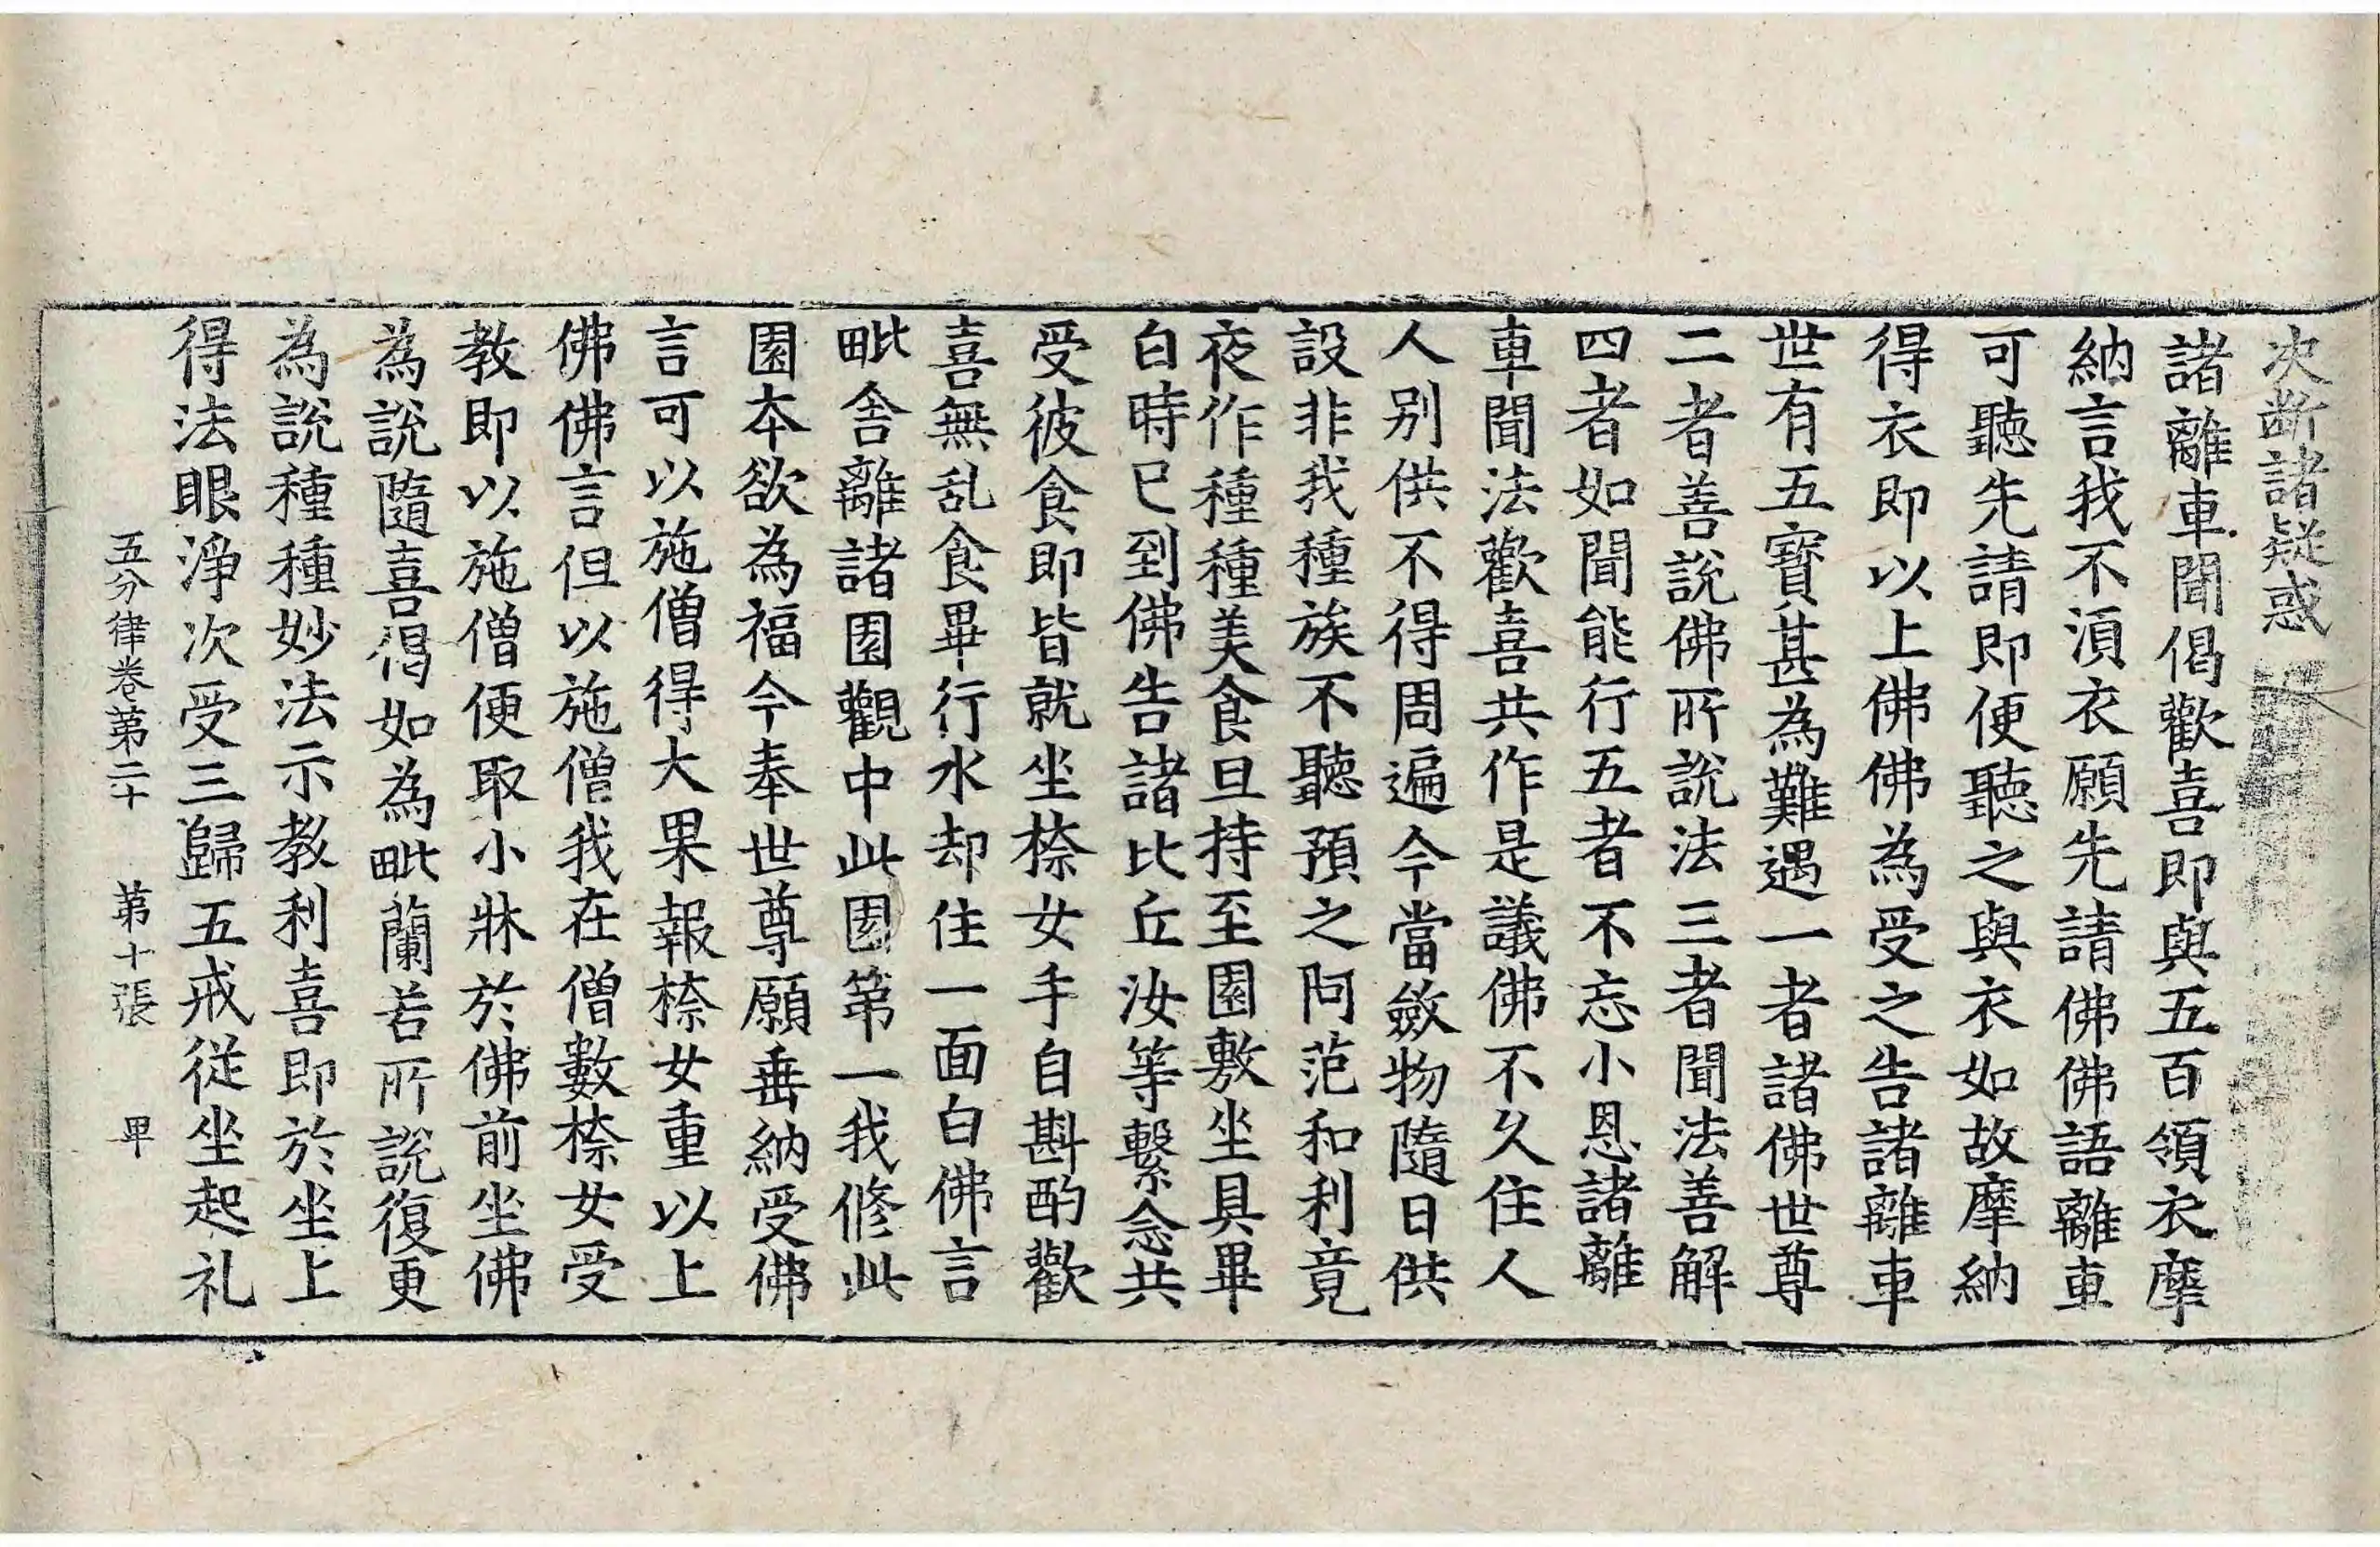 次断諸疑惑
諸離車聞偈歡喜即與五百領衣摩
納言我不湏衣願先請佛佛語離車
可聽先請即便聽之與衣如故摩納
得衣即以上佛佛為受之告諸離車
世有五寶甚為難遇一者諸佛世尊
二者善說佛所說法三者聞法善解
四者如聞能行五者不忘小恩諸離
車聞法歡喜共作是議佛不久住人
人別供不得周遍今當斂物隨日供
設非我種族不聽預之阿范和利竟
夜作種種美食旦持至園敷坐具畢
白時已到佛告諸比丘汝等繫念共
受彼食即皆就坐㮈女手自斟酌歡
喜無乱食畢行水却住一面白佛言
毗舍離諸園觀中此園第一我修此
園本欲為福今奉世尊願垂納受佛
言可以施僧得大果報㮈女重以上
佛佛言但以施僧我在僧數㮈女受
教即以施僧便取小牀於佛前坐佛
為說隨喜偈如為毗蘭若所說復更
為說種種妙法示教利喜即於坐上
得法眼淨次受三歸五戒從坐起礼
五分律卷第二十 第十張 甲